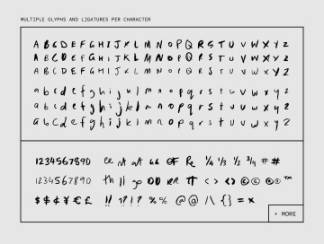 MULTIPLE GLYPHS AND LIGATURES PER CHARACTER
A B C D E F G H I J K L M N O P Q R S T U V W X Y Z
A B C D E F G H I J K L M N O P Q R S T U V W X Y Z
A B C D E F G H I J K L M N O P Q R S T U V W X Y Z
a b c d e f g h i j k l m n o p q r s t u v w x y z
a b c d e f g h i j k l m n o p q r s t u v w x y z
a b c d e f g h i j k l m n o p q r s t u v w x y z
1234567890 ¼ ½ ¾ # #
1234567890 th ll go OO RR TT < > <> © © ® ™
$ $ ¢ ¥ € £ !! ?!? %% @@ /\ {} = x
+ MORE